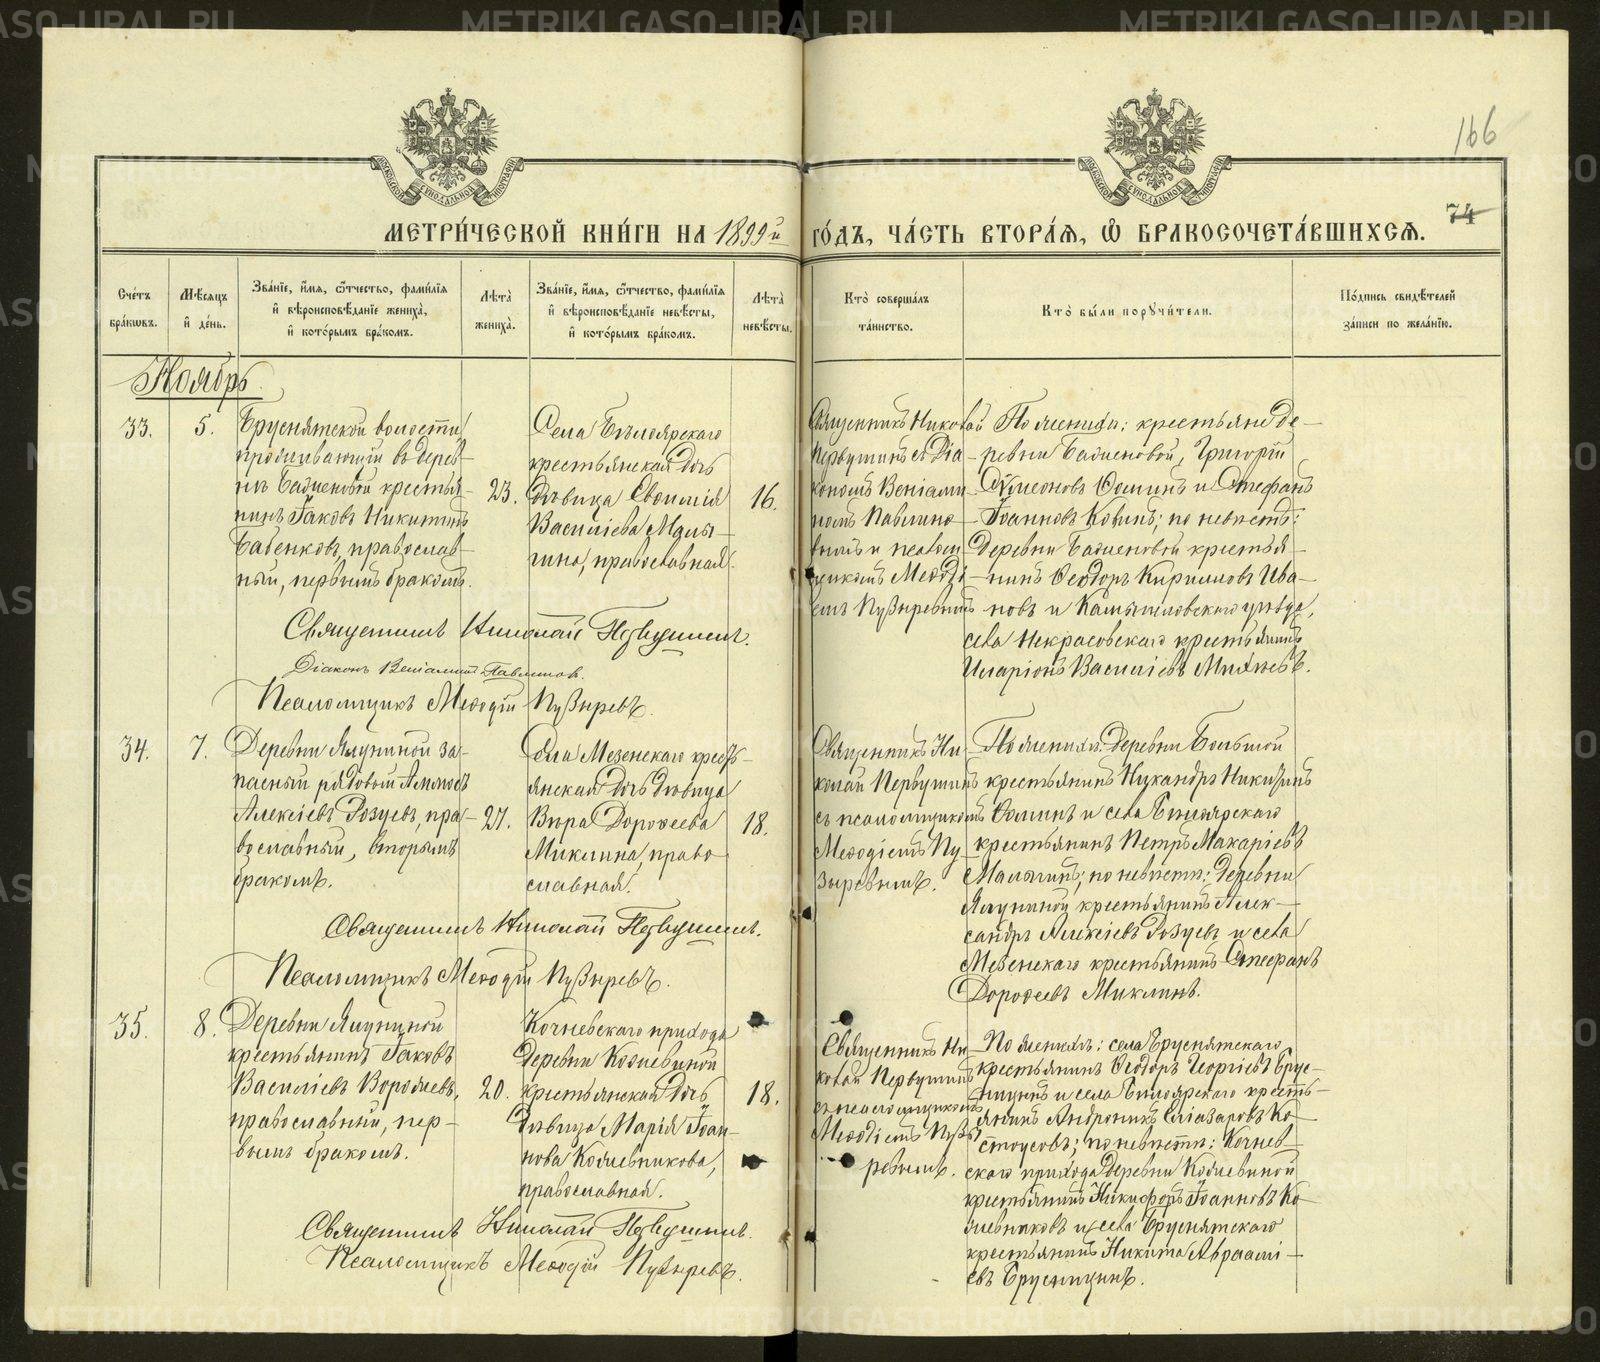 166
74
МЕТРИ́ЧЕСКОЙ КНИ́ГИ НА 1899й ГО́ДЪ, ЧА́СТЬ ВТОРА́Я, Ѡ БРАКОСОЧЕТА́ВШИХСЯ.
Сче́тъ бра́кѡвъ.
Мѣ́сяцъ и́ де́нь.
Зва́нїе, и́мя, ѻ҆́тчество, фами́лїя и҆ вѣроисповѣ́данїе жениха̀, и҆ кото́рымъ бра́комъ.
Лѣта̀ жениха̀.
Зва́нїе, и́мя, ѻ҆́тчество, фами́лїя и҆ вѣроисповѣ́данїе невѣ́сты, и҆ кото́рымъ бра́комъ.
Лѣта̀ невѣ́сты.
Кто̀ соверша́лъ та́инство.
Кто̀ бы́ли поручи́тели.
По́дпись свидѣ́телей за́писи по жела́нїю.
Ноябрь
33.
5.
Бруснятской волости,
проживающій въ дерев-
нѣ Баженовой крестья-
нинъ Іаковъ Никитинъ
Бабенковъ, православ-
ный, первымъ бракомъ.
23.
Села Бѣлоярскаго
крестьянская дочь
дѣвица Евѳимія
Василіева Малы-
гина, православная.
16.
Священникъ Николай
Первушинъ съ діа-
кономъ Веніами-
номъ Павлино-
вымъ и псалом-
щикомъ Меѳоді-
емъ Пузыревымъ
По женихѣ: крестьяне де-
ревни Баженовой, Григорій
Сѵмеоновъ Ѳоминъ и Стефанъ
Іоанновъ Ковинъ; по невѣстѣ:
деревни Баженовой крестья-
нинъ Ѳеодоръ Кирилловъ Ива-
новъ и Камышловскаго уѣзда,
села Некрасовскаго крестьянинъ
Иларіонъ Василіевъ Михѣевъ.
Священникъ Николай Первушинъ.
Діаконъ Веніаминъ Павлиновъ.
Псаломщикъ Меѳодій Пузыревъ.
34.
7.
Деревни Ялуниной за-
пасный рядовой
Алексіевъ Розуевъ, пра-
вославный, вторымъ
бракомъ.
27.
Села Мезенскаго кресть-
янская дочь дѣвица
Вѣра Дороѳеева
Миклина, право-
славная.
18.
Священникъ Ни-
колай Первушинъ
съ псаломщикомъ
Меѳодіемъ Пу-
зыревымъ.
По женихѣ: деревни Большой
крестьянинъ Никандръ Никитинъ
Ѳоминъ и села Бѣлоярскаго
крестьянинъ Петръ Макаріевъ
Малыгинъ; по невѣстѣ: деревни
Ялуниной крестьянинъ Алек-
сандръ Алексіевъ Розуевъ и села
Мезенскаго крестьянинъ Стефанъ
Дороѳеевъ Миклинъ.
Священникъ Николай Первушинъ.
Псаломщикъ Меѳодій Пузыревъ.
35.
8.
Деревни Ялуниной
крестьянинъ Іаковъ
Василіевъ Ворожевъ,
православный, пер-
вымъ бракомъ.
20.
Кочневскаго прихода
деревни Кожевиной
крестьянская дочь
дѣвица Марія Іоан-
нова Кожевникова,
православная.
18.
Священникъ Ни-
колай Первушинъ
съ псаломщикомъ
Меѳодіемъ Пузы-
ревымъ.
По женихѣ: села Бруснятскаго
крестьянинъ Ѳеодоръ Георгіевъ Брус-
ницынъ и села Бѣлоярскаго кресть-
янинъ Андроникъ Еліазаровъ Ко-
стоусовъ; по невѣстѣ: Кочнев-
скаго прихода деревни Кожевиной
крестьянинъ Никифоръ Іоанновъ Ко-
жевниковъ и села Бруснятскаго
крестьянинъ Никита Авраамі-
евъ Брусницынъ.
Священникъ Николай Первушинъ.
Псаломщикъ Меѳодій Пузыревъ.
METRIKI.GASO-URAL.RU